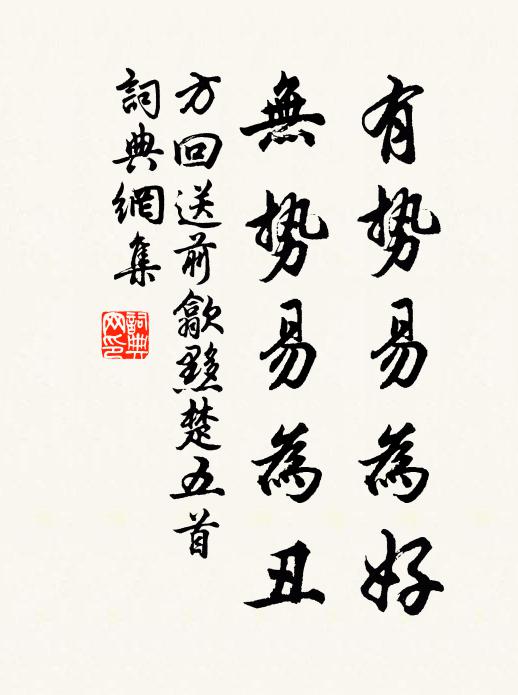 有势易為好
無势易為丑
方回送前歙黟楚五首
詞典網集
詞典网印